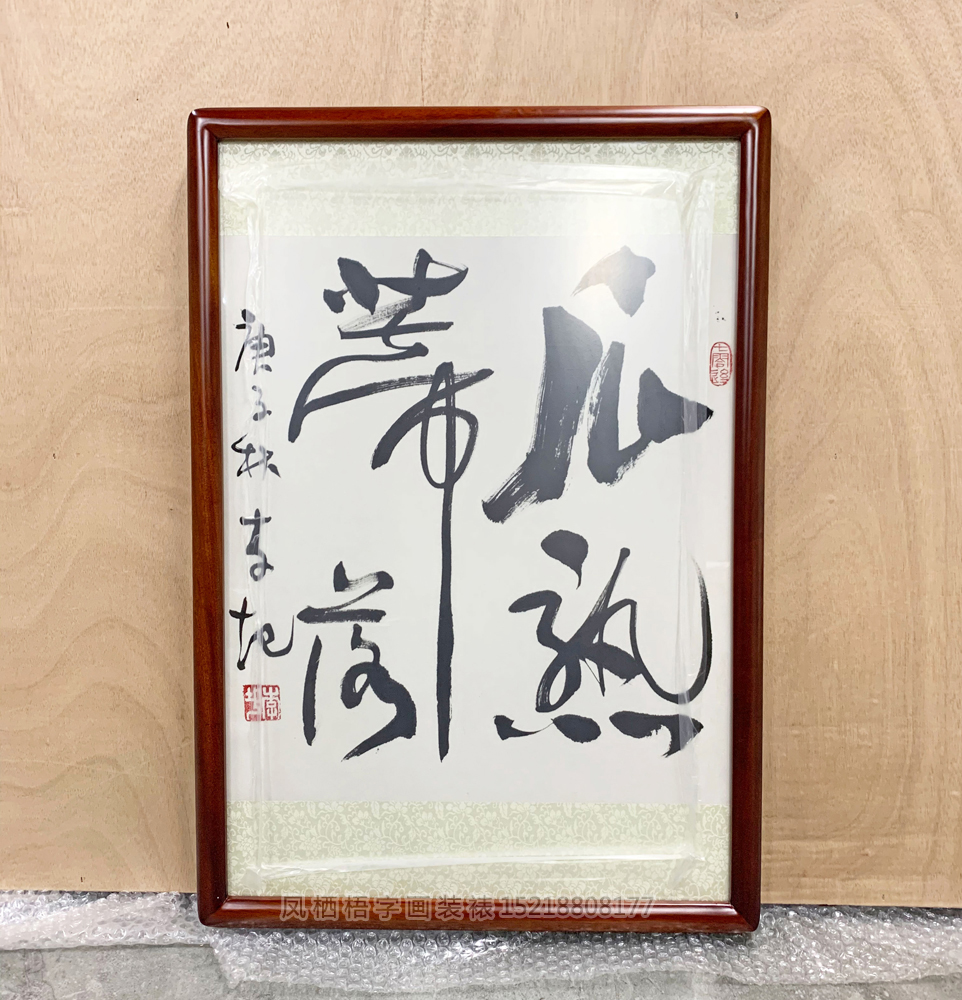 瓜熟
蒂落
庚子秋
凤栖梧字画装裱15218808177